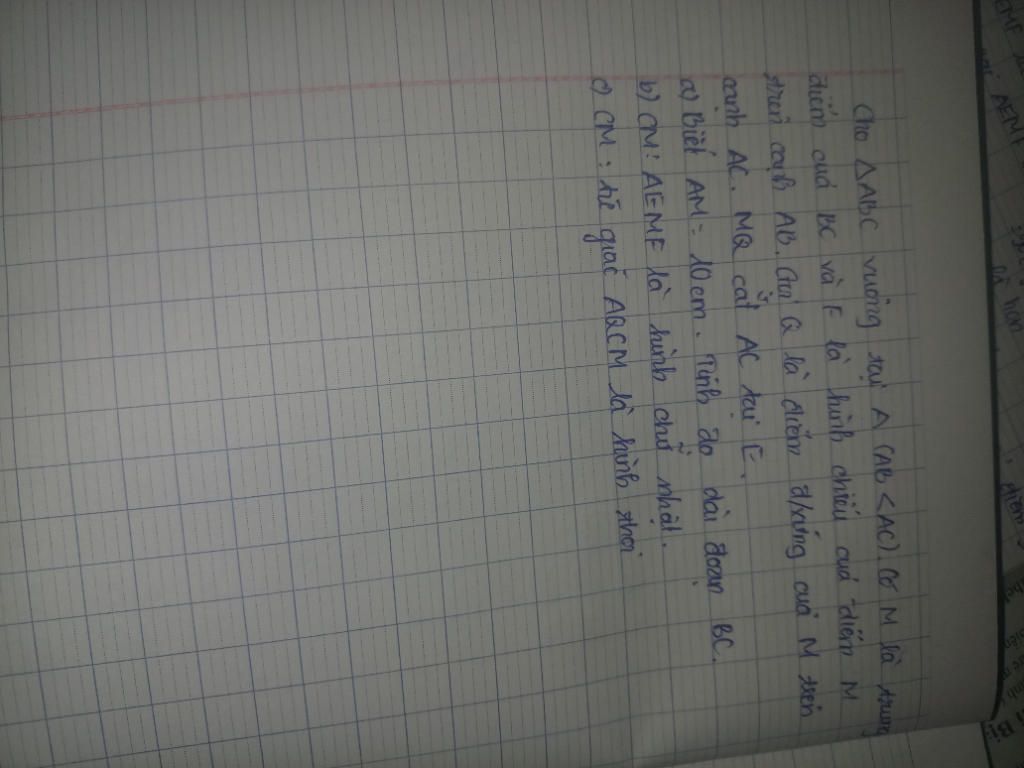 Cho △ABC vuông tại A (AB < AC) có M là trung
điểm của BC và E là hình chiếu của điểm M
trên cạnh AB. Gọi Q là điểm đhứng của M trên
cạnh AC. MQ cắt AC tại E.
a) Biết AM = 10cm. Tính độ dài đoạn BC.
b) CM: AEMF là hình chữ nhật.
c) CM: tứ giác AQCM là hình thoi